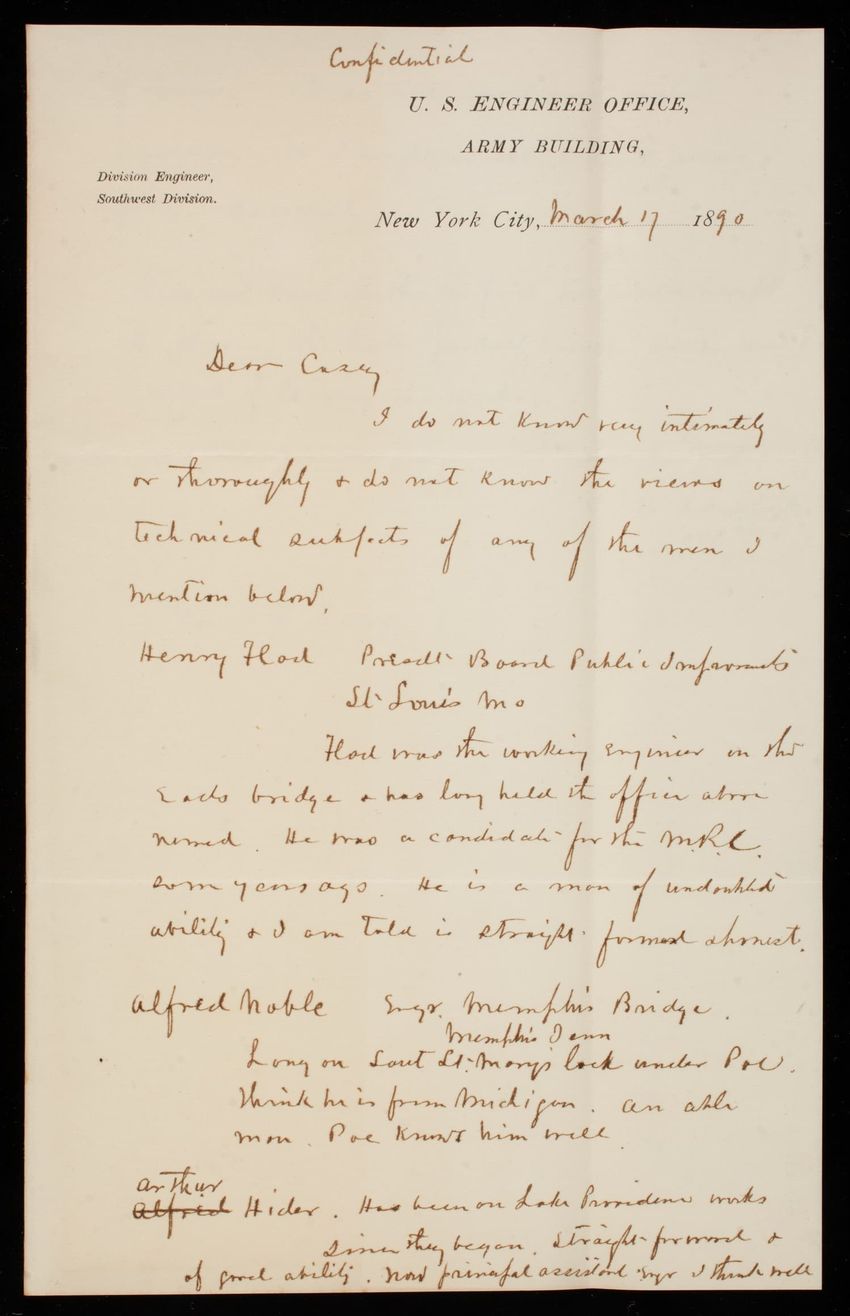 Confidential
U. S. ENGINEER OFFICE,
ARMY BUILDING,
Division Engineer,
Southwest Division.
New York City, March 17 1890
Dear Casey
I do not know very intimately
or thoroughly & do not know the views on
technical subjects of any of the men I
mention below.
Henry Flad Presdt Board Public Improvments
St Louis Mo
Flad was the working engineer on the
Eads bridge & has long held the office above
named. He was a candidate for the M.R.C.
some years ago. He is a man of undoubted
ability & I am told is straight-forward & honest.
Alfred Noble Engr. Memphis Bridge.
Memphis Tenn
Long on Saut St. Mary's lock under Poe.
think he is from Michigan. An able
man. Poe knows him well.
Arthur
Alfred Hider. Has been on Lake Providence works
since they began. Straight-forward &
of good ability. Now principal assistant Engr I think well